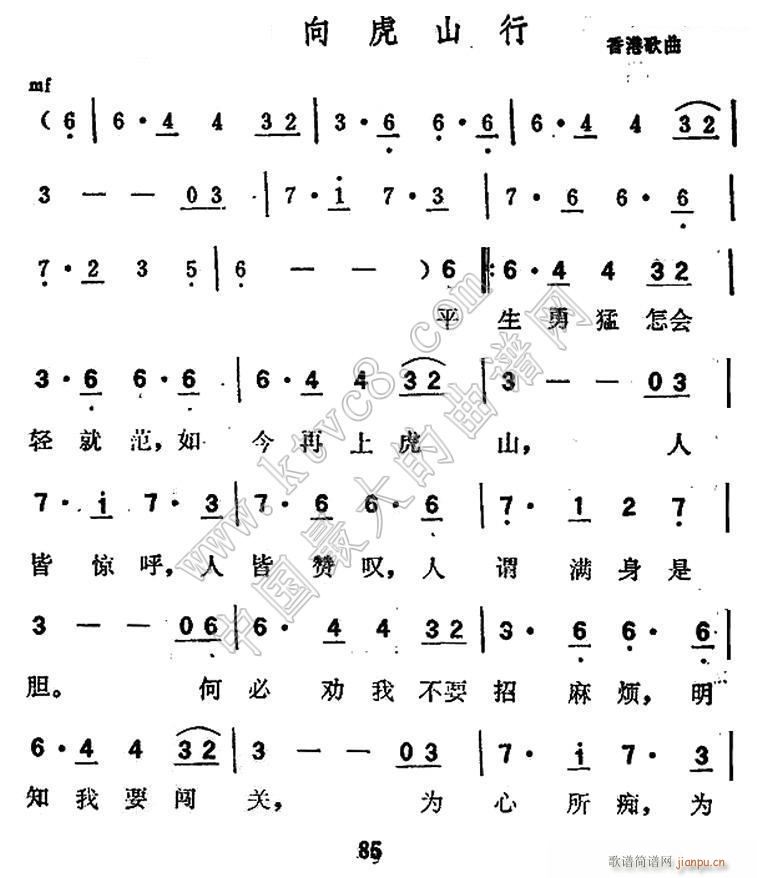 向虎山行
香港歌曲
mf
( 6 | 6 · 4 4 3 2 | 3 · 6 6 · 6 | 6 · 4 4 3 2 |
3 — — 0 3 | 7 · i 7 · 3 | 7 · 6 6 · 6 |
7 · 2 3 5 | 6 — — ) 6 ‖: 6 · 4 4 3 2 |
平 生 勇 猛 怎会
3 · 6 6 · 6 | 6 · 4 4 3 2 | 3 — — 0 3 |
轻 就 范, 如 今 再 上 虎 山, 人
7 · i 7 · 3 | 7 · 6 6 · 6 | 7 · 1 2 7 |
皆 惊 呼, 人 皆 赞 叹, 人 谓 满 身 是
3 — — 0 6 | 6 · 4 4 3 2 | 3 · 6 6 · 6 |
胆。 何 必 劝 我 不要 招 麻 烦, 明
6 · 4 4 3 2 | 3 — — 0 3 | 7 · i 7 · 3 |
知 我 要 闯 关, 为 心 所 痴, 为
www.ktvc8.com
中国最大的曲谱网
85
歌谱简谱网 jianpu.cn